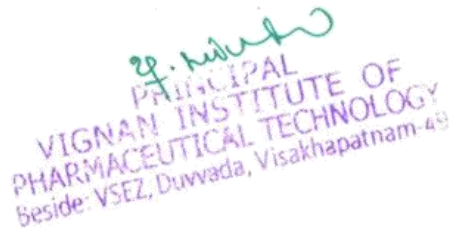 PRINCIPAL
VIGNAN INSTITUTE OF
PHARMACEUTICAL TECHNOLOGY
Beside: VSEZ, Duvvada, Visakhapatnam-49